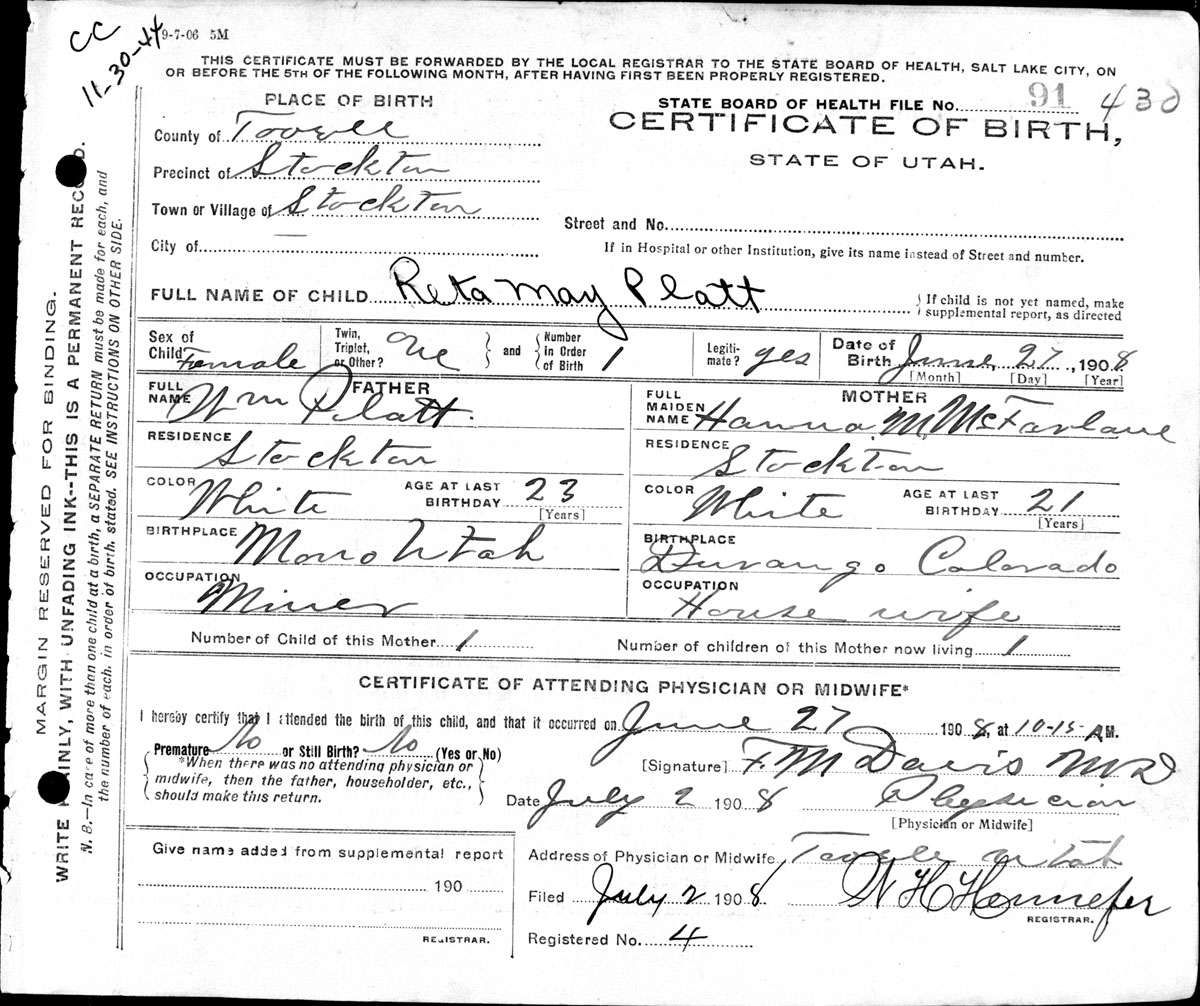 CC
11-30-44
9-7-06 5M
THIS CERTIFICATE MUST BE FORWARDED BY THE LOCAL REGISTRAR TO THE STATE BOARD OF HEALTH, SALT LAKE CITY, ON
OR BEFORE THE 5TH OF THE FOLLOWING MONTH, AFTER HAVING FIRST BEEN PROPERLY REGISTERED.
PLACE OF BIRTH
STATE BOARD OF HEALTH FILE No. 91 430
CERTIFICATE OF BIRTH,
STATE OF UTAH.
County of Tooele
Precinct of Stockton
Town or Village of Stockton
Street and No.
City of
If in Hospital or other Institution, give its name instead of Street and number.
FULL NAME OF CHILD Reta May Platt
If child is not yet named, make
supplemental report, as directed
Sex of Child Female
Twin, Triplet, or Other? One and Number in Order of Birth 1
Legiti-mate? yes
Date of Birth June 27, 1908
[Month] [Day] [Year]
FATHER
FULL NAME Wm Platt.
MOTHER
FULL MAIDEN NAME Hanna. M. McFarlane
RESIDENCE Stockton
RESIDENCE Stockton
COLOR White AGE AT LAST BIRTHDAY 23 [Years]
COLOR White AGE AT LAST BIRTHDAY 21 [Years]
BIRTHPLACE Utah
BIRTHPLACE Durango Colorado
OCCUPATION Miner
OCCUPATION House wife
Number of Child of this Mother 1
Number of children of this Mother now living 1
CERTIFICATE OF ATTENDING PHYSICIAN OR MIDWIFE*
I hereby certify that I attended the birth of this child, and that it occurred on June 27 1908, at 10-15 AM.
Premature No or Still Birth? No (Yes or No)
*When there was no attending physician or
midwife, then the father, householder, etc.,
should make this return.
[Signature] F. M Davis MD
Date July 2 1908 Physician
[Physician or Midwife]
Give name added from supplemental report
190
REGISTRAR.
Address of Physician or Midwife Tooele Utah
Filed July 2 1908 W H Hennefer
REGISTRAR.
Registered No. 4
MARGIN RESERVED FOR BINDING.
WRITE PLAINLY, WITH UNFADING INK--THIS IS A PERMANENT RECORD.
N. B.—In case of more than one child at a birth, a SEPARATE RETURN must be made for each, and
the number of each, in order of birth, stated. SEE INSTRUCTIONS ON OTHER SIDE.